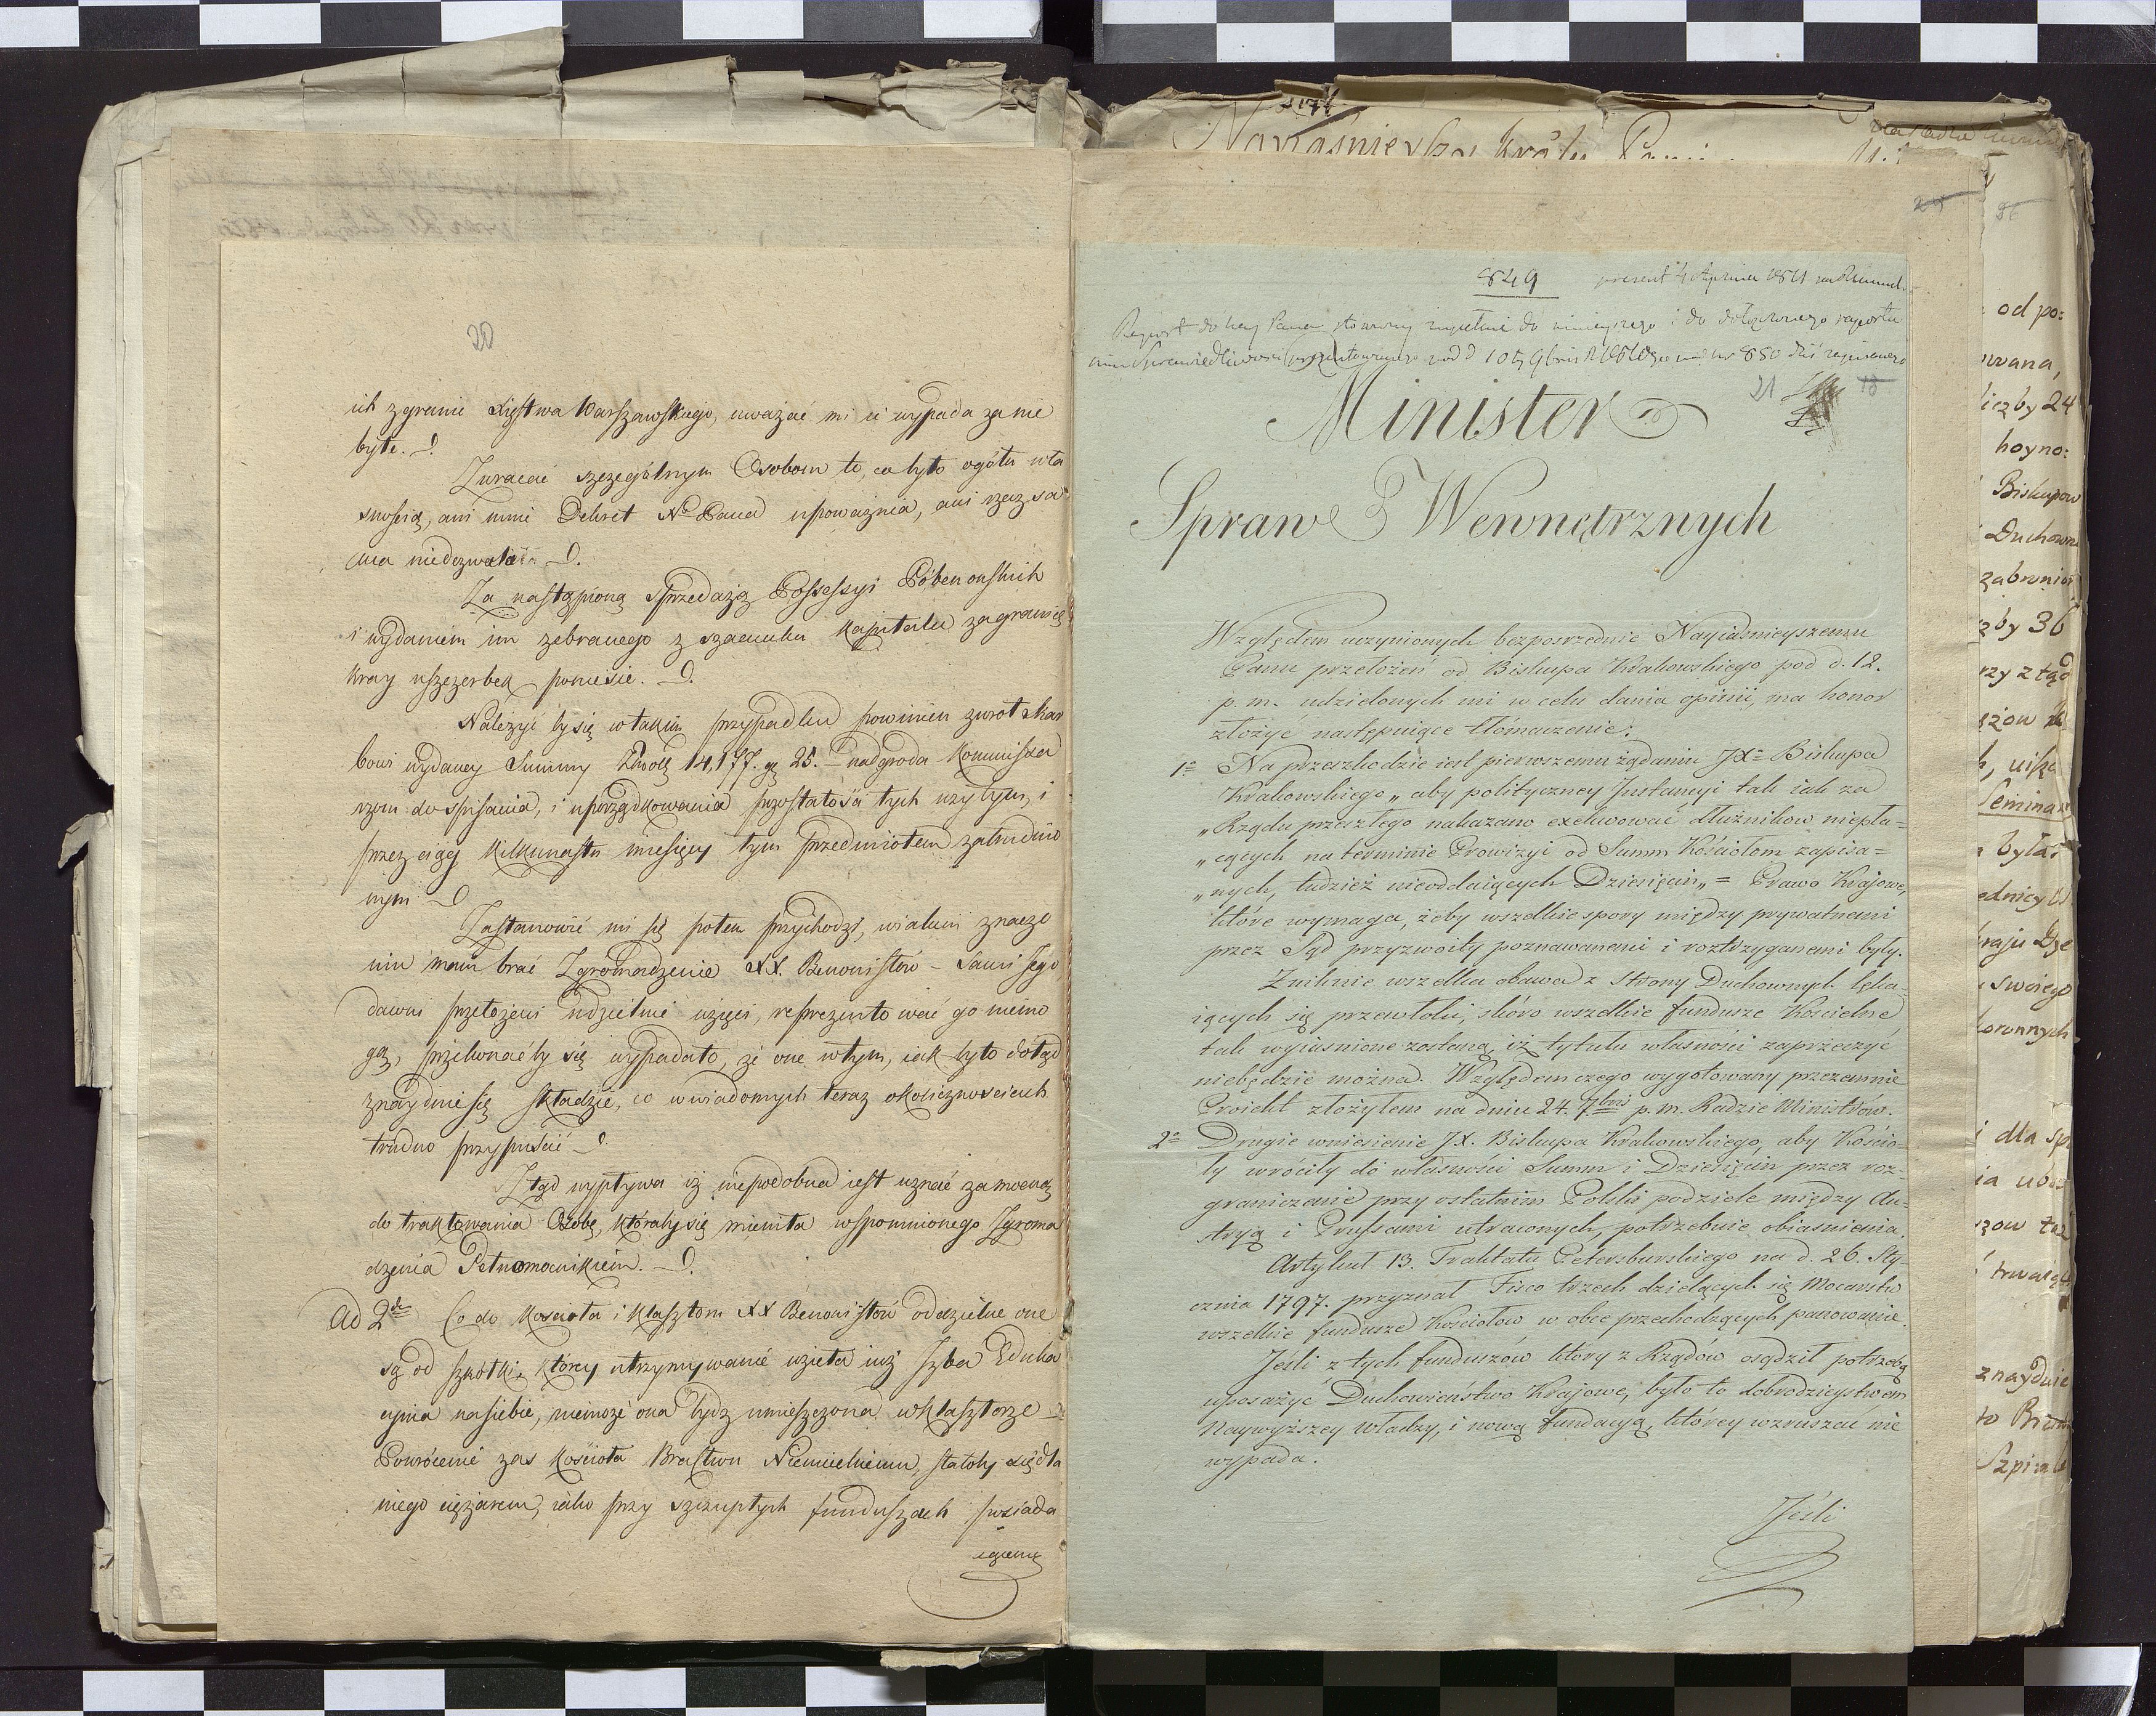 20
ich z granic Xięstwa Warszawskiego, uważać mi ie wypada za nie
byłe.
Zwracać szczególnym Osobom to, co było ogółu wła
snością, ani mnie Dekret N° Pana upoważnia, ani rzecz sa
ma niedozwala
Za nastąpioną sprzedażą Possessyi Pobenonskich
i wydaniem im zebranego z szacunku kapitału zagranicę
kray uszczerbek poniesie.
Należyć by się w takim przypadku powinien zwrot skar
bowi wydaney Summy Złłoty 14,177. gr 25. nadgroda Kommissa
rzom do spisania, i uporządkowania pozostałości tych użytym, i
przez ciąg kilkunastu miesięcy tym przedmiotem zatrudnio
nym
Zastanowić mi się potem przychodzi, w iakim znacze
niu mam brać Zgromadzenie XX. Benonistów - Sami iego
dawni przełożeni udzielnie wzięci, reprezentować go niemo
gą, przekonaćby się wypadało, że one w tym, iak było dotąd
znayduie się składzie, co w wiadomych teraz okolicznościach
trudno przypuścić
Ztąd wypływa iż niepodobna iest uznać za mocną
do traktowania Osobę, któraby się mieniła wspomnionego Zgroma
dzenia Pełnomocnikiem.
Ad 2do Co do Kościoła i Klasztoru XX Benonistów oddzielne one
są od szkółki, którey utrzymywanie wzięła iuż Izba Eduka
cyina na siebie, niemoże ona bydź umieszczona w klasztorze
Powrócenie zas Kościoła Bractwu Niemieckiemu, stałoby się dla
niego ciężarem, iako przy szczupłych funduszach posiada
iącemu
849
present 4 stycznia 1811
Raport do Nay Pana stosowny zupełnie do ninieyszego i do dołączonego raportu
min Sprawiedliwosci prezentowanego pod d 10 tego 9bris 1810go pod nr 850 dziś zapisanego
21
18
Minister
Spraw Wewnętrznych
Względem uczynionych bezposrzednie Nayiaśnieyszemu
Panu przełożeń od Biskupa Krakowskiego pod d. 12.
p. m. udzielonych mi w celu dania opinii ma honor
złożyć następuiące tłómaczenie:
1° Na przeszkodzie iest pierwszemu żądaniu JX° Biskupa
Krakowskiego „aby polityczney Instancyi tak iak za
„Rządu przeszłego nakazano exekwować dłużników niepła=
„cących na terminie Prowizyi od Summ Kościołom zapisa=
„nych, tudzież nieoddaiących Dziesięcin„ = Prawo Krajowe,
które wymaga, żeby wszelkie spory między prywatnemi
przez Sąd przyzwoity poznawanemi i roztrzyganemi były.
Zniknie wszelka obawa z strony Duchownych lęka-
iących się przewłoki, skóro wszelkie fundusze Kościelne
tak wyiasnione zostaną iż tytułu własności zaprzeczyć
niebędzie można. Względem czego wygotowany przezemnie
Proiekt złożyłem na dniu 24. 7bris p. m. Radzie Ministrów.
2° Drugie wniesienie JX. Biskupa Krakowskiego, aby Kościo-
ły wróciły do własności Summ i Dziesięcin przez roz-
graniczanie przy ostatnim Polski podziele między Au-
stryą i Prussami utraconych, potrzebuie obiasnienia.
Artykuł 13. Traktatu Petersburskiego na d. 26. Sty-
cznia 1797. przyznał Fisco trzech dzielących się Mocarstw
wszelkie fundusze Kościołów w obce przechodzących panowanie.
Jeśli z tych funduszów który z Rządów osądził potrzebą
uposażyć Duchowieństwo Krajowe, było to dobrodzieystwem
Naywyższey władzy, i nową fundacyą, którey wzruszać nie
wypada.
Jeśli
36
od po:
wana,
liczby 24
hoyno:
Biskupow
Duchown
zby 36
Seminar
była
swoiego
dla
znayduie
to